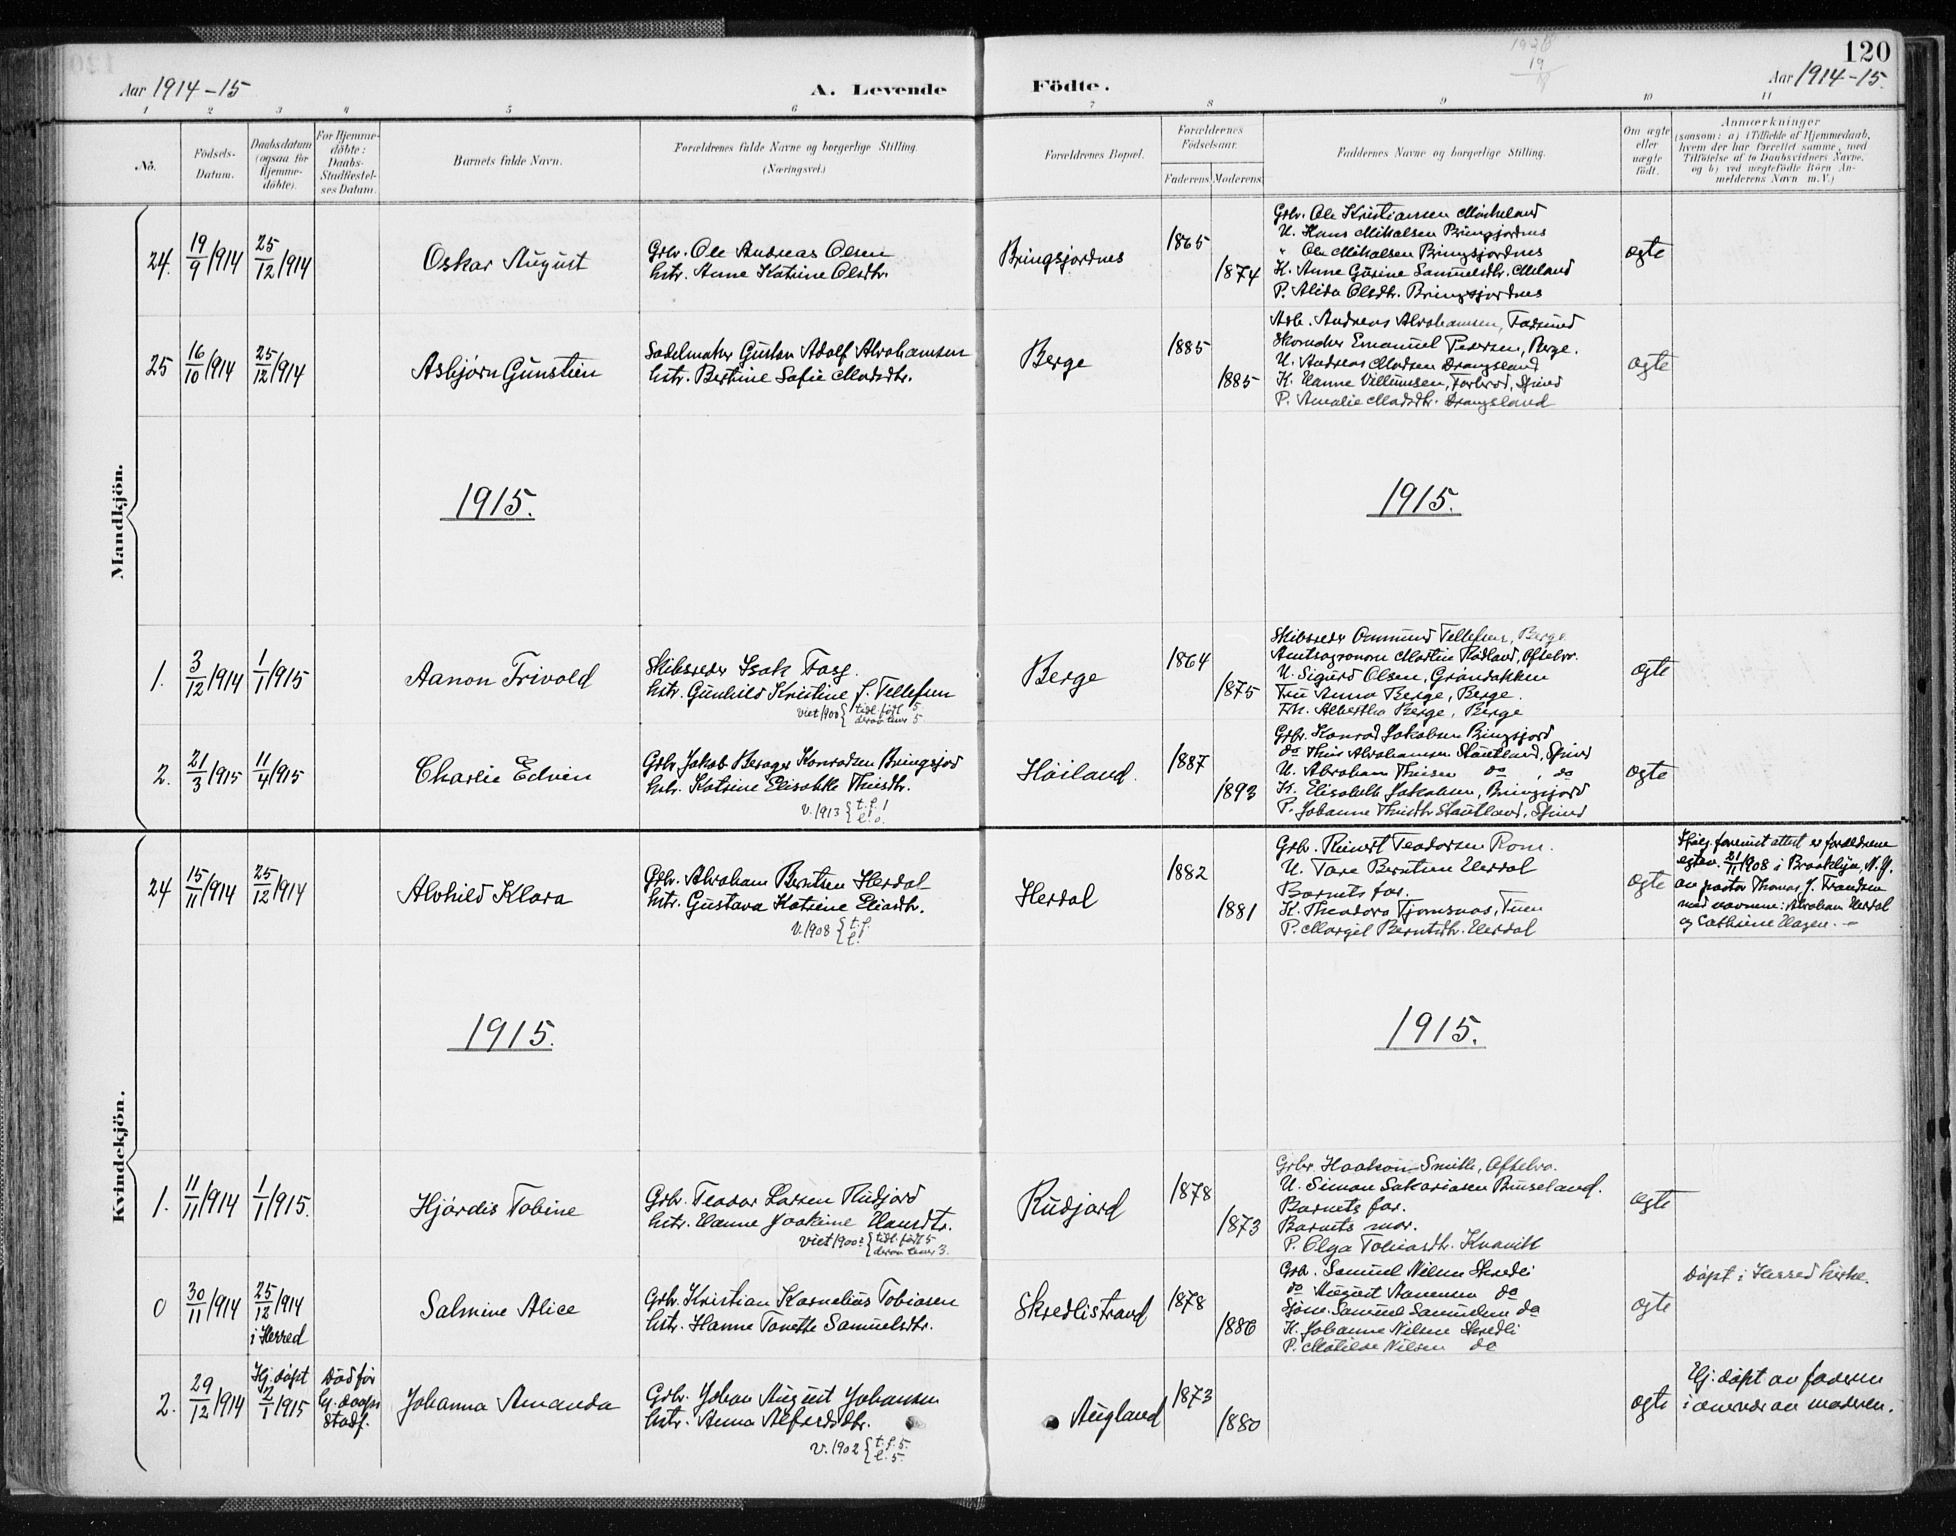 120
Aar 1914-15
A. Levende
Födte.
Aar 1914-15.
1 2 3 4 5 6 7 8 9 10 11
No.
Födsels-
Datum.
Daabsdatum
(ogsaa for
Hjemme-
döbte).
For Hjemme-
döbte:
Daabs-
Stadfæstel-
ses Datum.
Barnets fulde Navn.
Forældrenes fulde Navne og borgerlige Stilling.
(Næringsvei.)
Forældrenes Bopæl.
Forældrenes
Födselsaar.
Faderens.
Moderens.
Faddernes Navne og borgerlige Stilling.
Om ægte
eller
uægte
födt.
Anmærkninger
(saasom: a) i Tilfælde af Hjemmedaab,
hvem der har forrettet samme, med
Tilföielse af to Daabsvidners Navne,
og b) ved uægtefödte Börn An-
melderens Navn m.V.)
Mandkjön.
24. 19/9 1914 25/12 1914
Oskar August
Grbr. Ole Andreas Olsen
hstr. Anne Katrine Olsdtr.
Bringsjordnes
1865
1874
Grbr. Ole Kristiansen Møskeland
U. Hans Mikalsen Bringsjordnes
" Ole Mikalsen Bringsjordnes
K. Anne Gurine Samuelsdtr. Meland
P. Alida Olsdtr. Bringsjordnes
ægte
25 16/10 1914 25/12 1914
Asbjørn Gunstein
Sadelmaker Gustav Adolf Abrahamsen
hstr. Bertine Sofie Madsdtr.
Berge
1885
1885
Arb. Andreas Abrahamsen, Farsund
Skomaker Emanuel Pedersen, Berge.
U. Andreas Madsen Drangsland
K. Hanne Villumsen, Farbrod, Spind
P. Amalie Madsdtr. Drangsland
ægte
1915.
1915.
1. 3/12 1914 1/1 1915
Aanon Trivold
Skibsreder Isak Fasg.
hstr. Gunhild Kristine f. Tellefsen
viet 1900 { tidl. født 5
derav lever 5.
Berge
1864
1875
Skibsreder Ommund Tellefsen, Berge
Amtsagronom Martin Rødland, Oftebro.
U. Sigurd Olsen, Grandakken
Fru Anna Berge, Berge.
Frk. Albertha Berge, Berge
ægte
2. 21/3 1915 11/4 1915
Charlie Edvin
Grbr. Jakob Berager Konradsen Bringsjord
hstr. Katrine Elisabeth Thiesdtr.
v. 1913 { t. f. 1
l. 0.
Høiland.
1887
1893
Grbr. Konrad Jakobsen Bringsjord
do Thies Abrahamsen Stautland, Spind
U. Abraham Thiesen do , do
K. Elisabeth Jakobsen, Bringsjord
P. Johanne Thiesdtr Stautland, Spind
ægte
Kvindekjön.
24 15/11 1914 25/12 1914
Alvhild Klara
Grbr. Abraham Berntsen Herdal
hstr. Gustava Katrine Eliasdtr.
v. 1908 { t. f.
l.
Herdal
1882
1881
Grbr. Reinert Teodorsen Rom.
U. Tore Berntsen Herdal
Barnets far.
K. Theodora Tjomsnas, Tuen
P. Margit Berntsdtr. Herdal
ægte
Ifølge foreviist attest er forældrene
egtev. 21/11 1908 i Brooklyn, N.Y.
av pastor Thomas J. Frandsen
med navnene: Abraham Herdal
og Cathrine Hagen. —
1915.
1915.
1. 11/11 1914 1/1 1915.
Hjørdis Tobine
Grbr. Teodor Larsen Rudjord
hstr. Hanne Joakime Hansdtr.
viet 1900: { tidl. født 5
derav lever 3.
Rudjord
1878
1873
Grbr. Haakon Smith, Oftebro.
U. Simon Sakariasen Buseland.
Barnets far.
Barnets mor.
P. Olga Tobiasdtr. Kvavik
ægte
0 30/11 1914 25/12 1914
i Herred
Salmine Alice
Grbr. Kristian Kornelius Tobiasen
hstr. Hanne Tonette Samuelsdtr.
Skredlistrand
1878
1886
Grbr. Samuel Nilsen Skredli
do August Aanensen do
Sjøm. Samuel Samuelsen do
K. Johanne Nilsen Skredli
P. Matilde Nilsen do
ægte
Døpt i Herred kirke.
2. 29/12 1914
Hj. døpt
2/1 1915
Død før
hj. daaps
stadf.
Johanna Amanda
Grbr. Johan August Johansen
hstr. Anna Alfredsdtr.
v. 1902 { t. f. 5.
l. 5.
Augland
1873
1880
ægte
Hj. døpt av faderen
i nærvær av moderen.